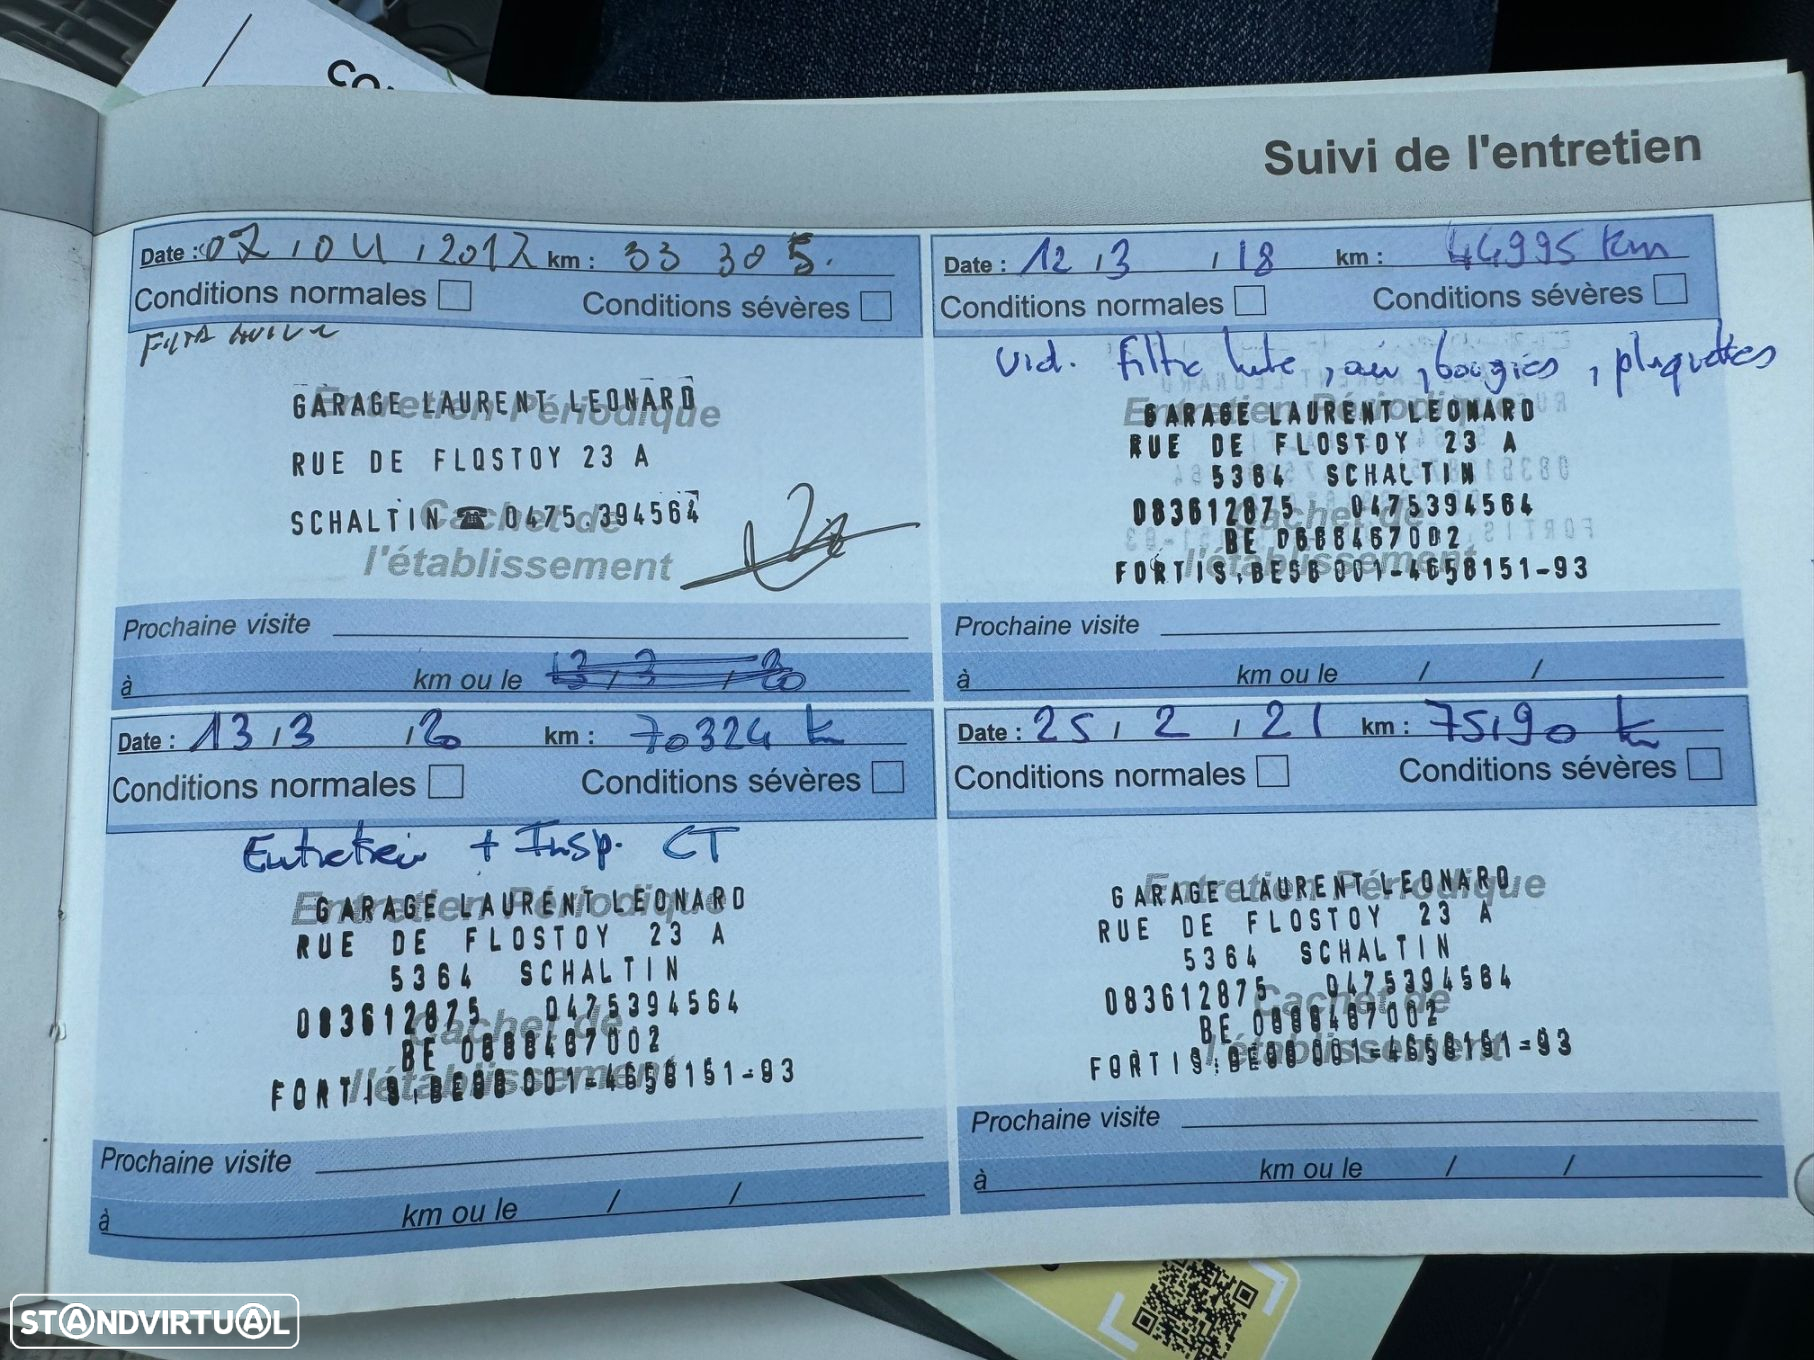 Suivi de l'entretien
Date : 07 / 04 / 2017 km : 33 305.
Conditions normales Conditions sévères
Entretien Périodique
GARAGE LAURENT LEONARD
RUE DE FLOSTOY 23 A
SCHALTIN ☎ 0475.394564
Cachet de
l'établissement
Prochaine visite
à km ou le 13 / 3 / 20
Date : 12 / 3 / 18 km : 44995 km
Conditions normales Conditions sévères
vid. filtre huile, air, bougies, plaquettes
Entretien Périodique
GARAGE LAURENT LEONARD
RUE DE FLOSTOY 23 A
5364 SCHALTIN
083612875 0475394564
Cachet de
BE 0688467002
l'établissement
FORTIS: 001-4658151-93
Prochaine visite
à km ou le / /
Date : 13 / 3 / 20 km : 70324 k
Conditions normales Conditions sévères
Entretien + Insp. CT
Entretien Périodique
GARAGE LAURENT LEONARD
RUE DE FLOSTOY 23 A
5364 SCHALTIN
083612875 0475394564
Cachet de
BE 0688467002
l'établissement
FORTIS: 001-4658151-93
Prochaine visite
à km ou le / /
Date : 25 / 2 / 21 km : 75190 k
Conditions normales Conditions sévères
Entretien Périodique
GARAGE LAURENT LEONARD
RUE DE FLOSTOY 23 A
5364 SCHALTIN
083612875 0475394564
Cachet de
BE 0688467002
l'établissement
FORTIS: 001-4658151-93
Prochaine visite
à km ou le / /
STANDVIRTUAL